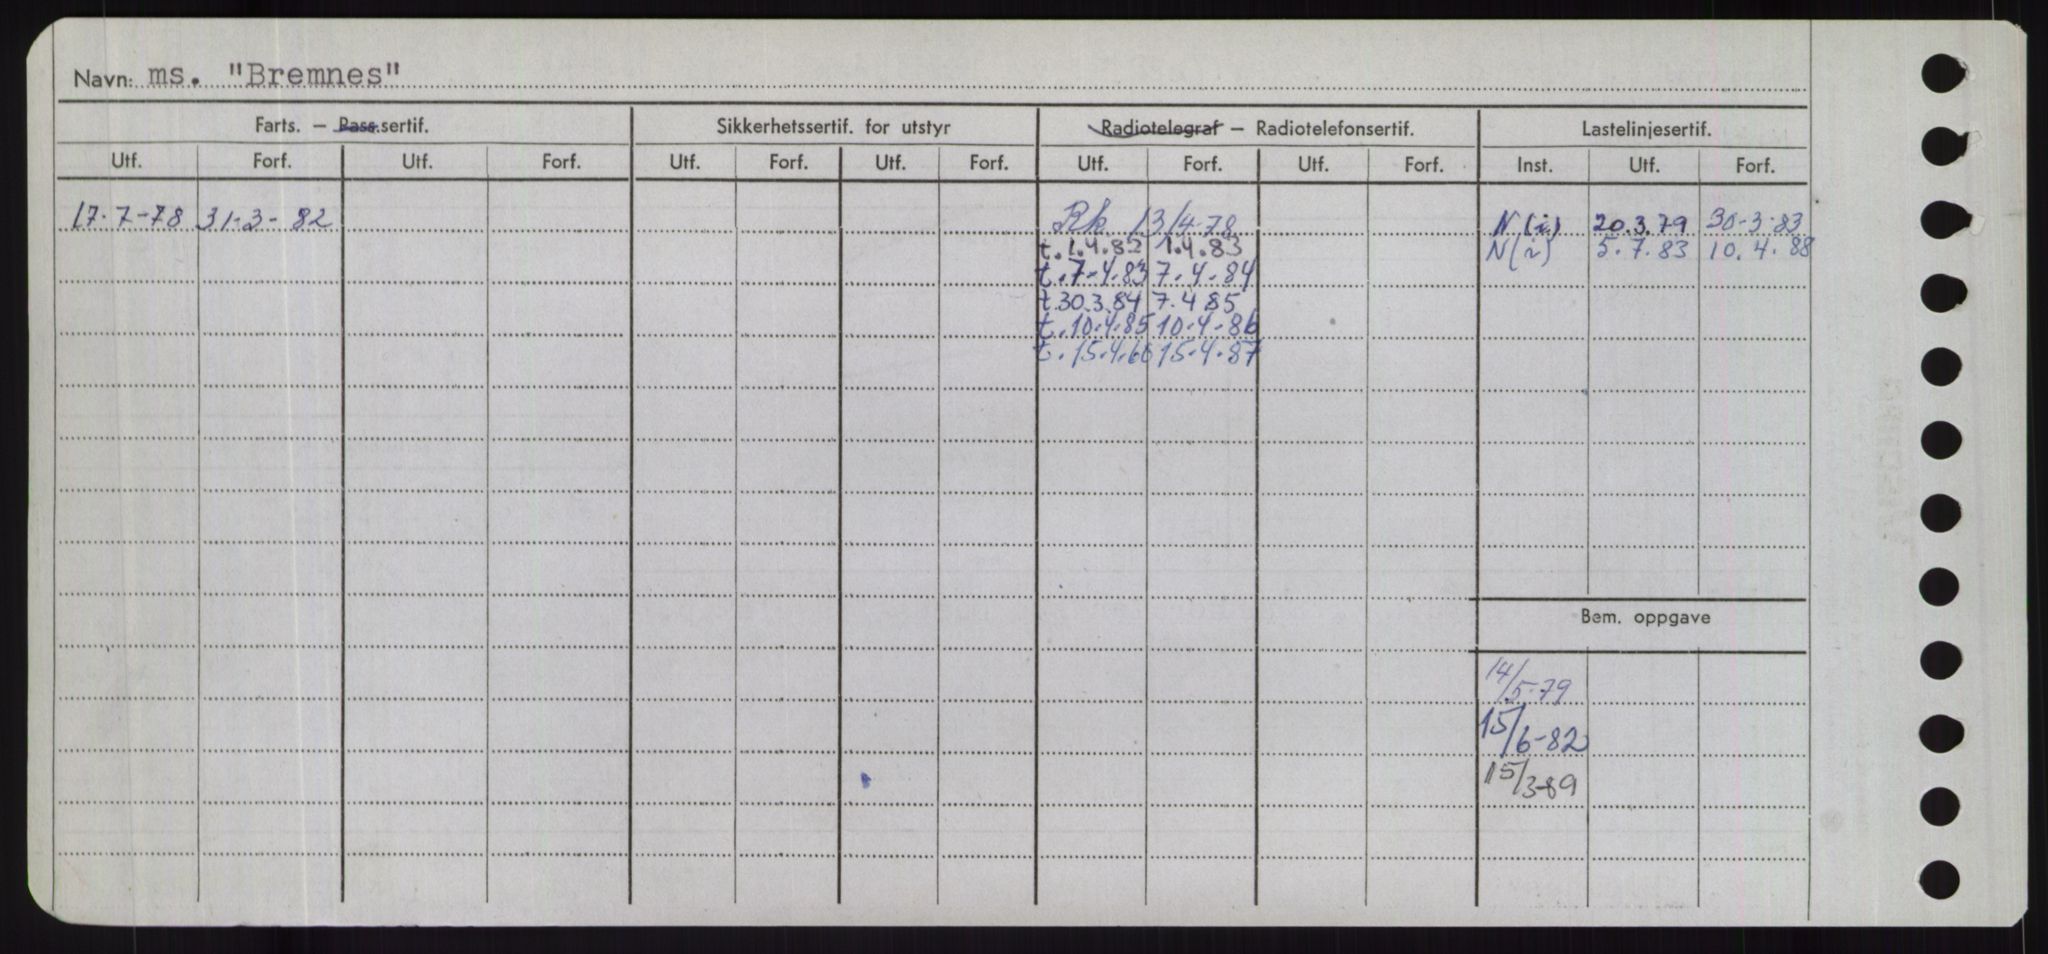 Navn: ms. "Bremnes"
Farts. – Pass.sertif. Sikkerhetssertif. for utstyr Radiotelegraf – Radiotelefonsertif. Lastelinjesertif.
Utf. Forf. Utf. Forf. Utf. Forf. Utf. Forf. Utf. Forf. Utf. Forf. Inst. Utf. Forf.
17.7-78 31-3-82 Rk. 13/4-78 N(i) 20.3.79 30-3-83
t.1.4.82 1.4.83 N(i) 5.7.83 10.4.88
t.7-4.83 7.4-84
t.30.3.84 7.4 85
t.10.4.85 10.4-86
t.15.4.66 15.4.87
Bem. oppgave
14/5-79
15/6-82
15/3-89